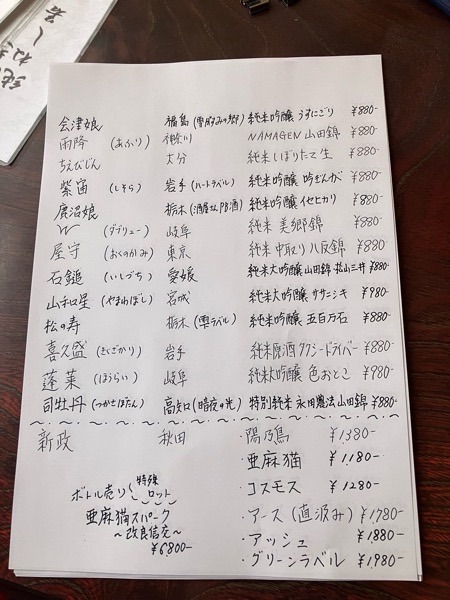 会津娘 福島(雲がすみの郷) 純米吟醸 うすにごり ¥880-
雨降 (あふり) 神奈川 NAMAGEN 山田錦 ¥880-
ちえびじん 大分 純米 しぼりたて生 ¥880-
紫宙 (しそら) 岩手(ハートラベル) 純米吟醸 吟ぎんが ¥880-
鹿沼娘 栃木(酒屋さんPB酒) 純米吟醸 イセヒカリ ¥880-
W (ダブリュー) 岐阜 純米 美郷錦 ¥880-
屋守 (おくのかみ) 東京 純米 中取り 八反錦 ¥880-
石鎚 (いしづち) 愛媛 純米大吟醸 山田錦 松山三井 ¥880-
山和星 (やまわぼし) 宮城 純米大吟醸 ササニシキ ¥980-
松の寿 栃木(雫ラベル) 純米吟醸 五百万石 ¥880-
喜久盛 (きくざかり) 岩手 純米原酒 タクシードライバー ¥880-
蓬莱 (ほうらい) 岐阜 純米大吟醸 色おとこ ¥980-
司牡丹 (つかさぼたん) 高知(暗夜の光) 特別純米 永田農法 山田錦 ¥880-
新政 秋田 ・陽乃鳥 ¥1380-
・亜麻猫 ¥1180-
・コスモス ¥1280-
・アース(直汲み) ¥1780-
・アッシュ ¥1880-
・グリーンラベル ¥1,980-
ボトル売り(特殊ロット)
亜麻猫スパーク
~改良信交~
¥6800-